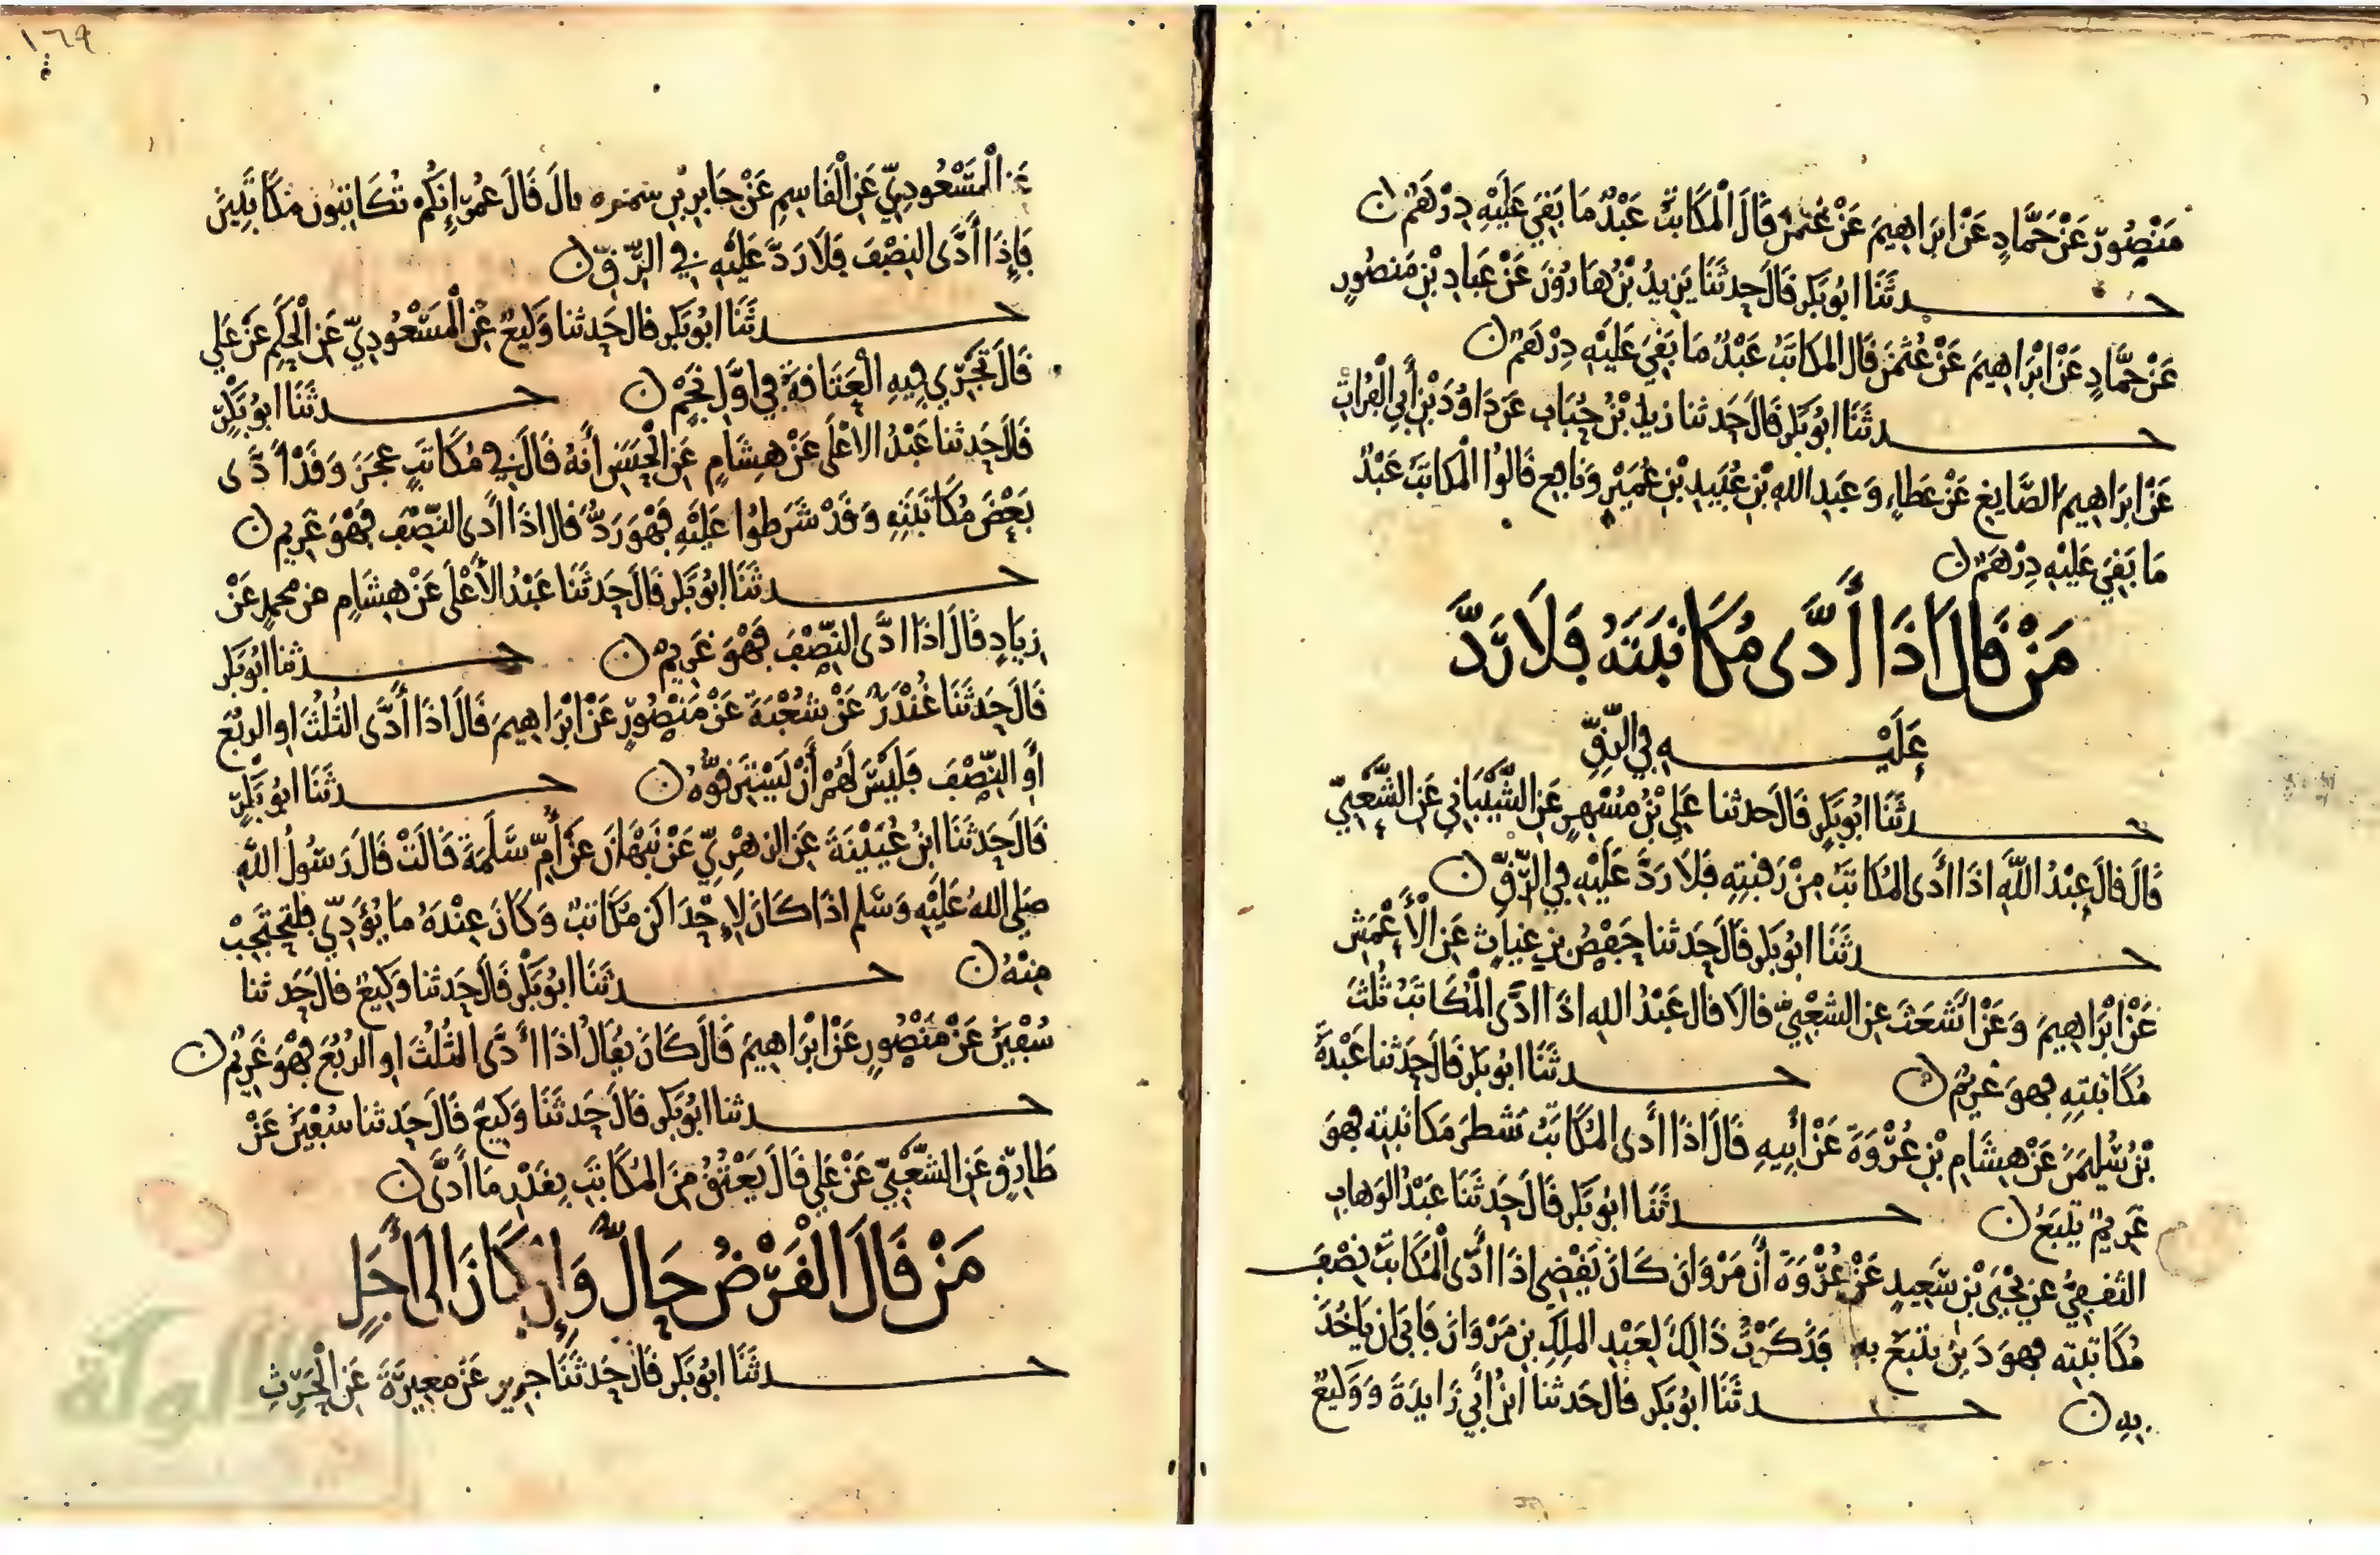 مَنْصُورٍ عَنْ حَمَّادٍ عَنْ ابْرَاهِيمَ عَنْ عُثْمٰنَ قَالَ الْمُكَاتَبُ عَبْدٌ مَا بَقِيَ عَلَيْهِ دِرْهَمٌ ن
حدثَنَا ابُو بَكْرٍ قَالَ حَدثَنَا يَزِيدُ بْنُ هَارُونَ عَنْ عَبادِ بْنِ مَنصُورٍ
عَنْ حَمَّادٍ عَنْ ابْرَاهِيمَ عَنْ عُثْمٰنَ قَالَ المكَاتَبُ عَبْدٌ مَا بَقِيَ عَلَيْهِ دِرْهَمٌ ن
حدثَنَا ابُو بَكْرٍ قَالَ حَدثنا زيد بْنُ حُبَابٍ عَن دَاوُدَ بْنِ أَبِي الْفُرَاتِ
عَنْ ابرَاهِيمَ الصَّايِغِ عَنْ عَطَاءٍ وَ عَبدِ اللهِ بْنِ عُبَيدِ بْنِ عُمَيْرٍ وَنَافِعٍ قَالُوا الْمكَاتَبُ عَبْدٌ
مَا بَقِيَ عَلَيْهِ دِرْهَمٌ ن
مَنْ قَالَ اذَا أَدَّى مُكَاتَبَتَهُ فَلَا رَدَّ
عَلَيْهِ فِي الرِّقِّ
حدثَنَا ابُو بَكْرٍ قَالَ حَدثنا عَلِي بْنُ مُسْهِرٍ عَنِ الشَّيْبَانِي عَنِ الشَّعْبِيِّ
قَالَ قَالَ عَبْدُ اللَّهِ اذَا أَدى المُكَاتَبُ مِنْ رَقبتِهِ فَلَا رَدَّ عَلَيْهِ فِي الرِّقِّ ن
حدثَنَا ابُو بَكْرٍ قَالَ حَدثنا حَفْصُ بن غِيَاثٍ عَنِ الْأَعْمَشِ
عَنْ ابْرَاهِيمَ وَعَنْ أَشْعَثَ عَنِ الشَّعْبِيِّ قَالَا قَالَ عَبْدُ اللهِ اذَا ادَّى الْمُكَاتَبُ ثُلُثَ
مُكَاتَبَتِهِ فهوَ غَرِيمٌ ن حدثَنَا ابُو بَكْرٍ قَالَ حَدثنا عَبْدَةُ
بْنُ سُلَيمٰنَ عَنْ هِشَامِ بْنِ عُرْوَةَ عَنْ أَبِيهِ قَالَ اذَا أَدى المُكَاتَبُ شَطرَ مكَاتبته فهوَ
غَرِيمٌ يتْبَعُ ن حدثَنَا ابُو بَكْرٍ قَالَ حَدثَنَا عَبْدُ الوَهابِ
الثقفِيُّ عن يَحْيَى بْنِ سَعِيدٍ عَنْ عُرْوَةَ أَن مَرْوَانَ كَانَ يَقْضِي اذَا أدّى الْمُكَاتَبُ نِصْفَ
مُكَاتبتِهِ فهوَ دَيْن يتْبَعُ به فَذَكَرْتُ ذَالِكَ لعَبْدِ الملِكِ بنِ مَرْوَانَ فَابَى ان يَاخُذَ
بِهِ ن حدثَنَا ابُو بَكْرٍ قَالَ حَدثنا ابنُ أَبِي زَايِدَةَ وَ وَكِيعٌ
عَن الْمَسْعُودِيِّ عَنِ الْقَاسِمِ عَنْ جَابِرِ بْنِ سَمُرَه قالَ قَالَ عُمَر إِنَّكُمْ تُكَاتِبُونَ مُكَاتَبِينَ
فَإِذَا أَدَّى النِصْفَ فَلَا رَدَّ عَلَيْهِ فِي الرِّقِّ ن
حدثَنَا ابُو بَكْرٍ قالَ حَدثنا وَكِيعٌ عَنِ الْمَسْعُودِيِّ عَنِ الْحَكَمِ عَنْ عَلِي
قَالَ تَجْرِي فِيهِ الْعَتَاقَةُ فِي اوَّلِ نَجْمٍ ن حدثَنَا ابُو بَكْرٍ
قَالَ حَدثنا عَبْدُ الاعْلَى عَنْ هِشَامٍ عَنِ الْحَسَنِ أَنَهُ قَالَ فِي مُكَاتَبٍ عجَزَ وَقَدْ أَدَّى
بَعْضَ مُكَاتَبَتِهِ وَقَدْ شَرَطُوا عَلَيْهِ فَهْوَ رَدٌّ قَالَ اذَا أَدَى النِّصْفَ فَهْوَ غَرِيم ن
حدثَنَا ابُو بَكْرٍ قَالَ حَدثَنَا عَبْدُ الأَعْلَى عَنْ هِشَامٍ عن محمدٍ عَنْ
زِيَادٍ قَالَ اذَا ادَّى النِّصْفَ فَهْوَ غَرِيمٌ ن حدثنا ابُو بَكْرٍ
قَالَ حَدثَنَا غُنْدَرٌ عَنْ شُعْبَةَ عَنْ مَنْصُورٍ عَنْ ابْرَاهِيمَ قَالَ اذَا أَدَّى الثُلُثَ اوِ الربُعَ
أَوِ النِّصْفَ فَلَيْسَ لَهُمْ أَنْ يَسْتَرِقُّوهُ ن حدثَنَا ابُو بَكْرٍ
قَالَ حَدثَنَا ابنُ عُيَيْنَةَ عَنِ الزهْرِيِّ عَنْ نَبْهَانَ عَنْ أُمِّ سَلَمَةَ قَالَتْ قَالَ رَسُولُ اللَّهِ
صَلى اللهُ عَلَيْهِ وَسَّلم اذَا كَانَ لِإِحْدَاكن مُكَاتبٌ وَكَانَ عِنْدَهُ مَا يُؤَدِّي فلتحْتَجِبْ
مِنْهُ ن حدثَنَا ابُو بَكْرٍ قَالَ حَدثنا وَكِيعٌ قالَ حَدثنا
سُفْيٰنُ عَنْ مَنْصُورٍ عَنْ ابْرَاهِيمَ قَالَ كَانَ يقَالُ اذَا ادَّى الثُلُثَ اوِ الربُعَ فَهْوَ غَرِيمٌ ن
حدثنا ابُو بَكْرٍ قَالَ حَدثَنَا وَكِيعٌ قَالَ حَدثنا سُفْيٰنُ عَنْ
طَارِقٍ عَنِ الشَّعْبِيِّ عَنْ عَلِي قَالَ يَعْتِقُ مِنَ المُكَاتَبِ بِقَدْرِ مَا أَدَّى ن
مَنْ قَالَ الْقَرْضُ حَالٌّ وَإِن كَانَ الَى أَجَلٍ
حدثَنَا ابُو بَكْرٍ قَالَ حَدثَنَا جرِير عَنْ مغِيرَةَ عَنِ الْحَرِثِ
١٦٩
الألوكة